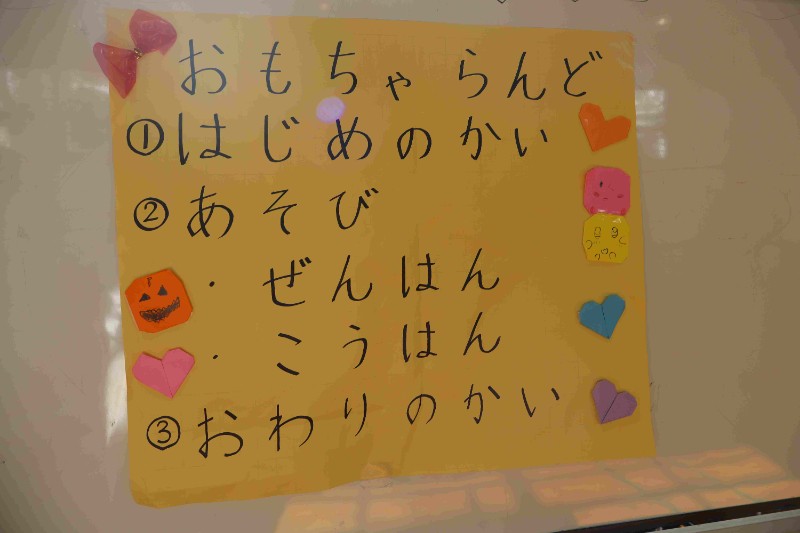 おもちゃらんど
①はじめのかい
②あそび
・ぜんはん
・こうはん
③おわりのかい